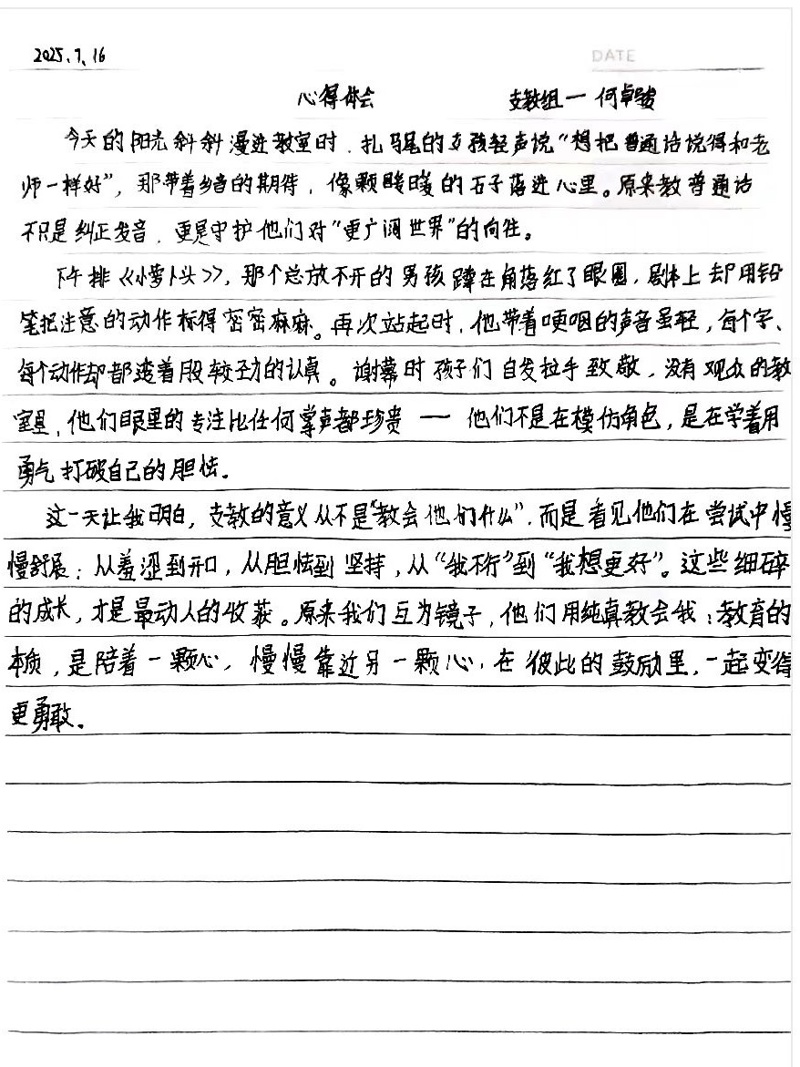 2025.7.16
DATE
心得体会 支教组一何卓骏
今天的阳光斜斜漫进教室时，扎马尾的女孩轻声说“想把普通话说得和老
师一样好”，那带着乡音的期待，像颗暖暖的石子落进心里。原来教普通话
不只是纠正发音，更是守护他们对“更广阔世界”的向往。
下午排《小萝卜头》，那个总放不开的男孩蹲在角落红了眼圈，剧本上却用铅
笔把注意的动作标得密密麻麻。再次站起时，他带着哽咽的声音虽轻，每个字、
每个动作却都透着股较劲的认真。谢幕时孩子们自发拉手致敬，没有观众的教
室里，他们眼里的专注比任何掌声都珍贵——他们不是在模仿角色，是在学着用
勇气打破自己的胆怯。
这一天让我明白，支教的意义从不是“教会他们什么”，而是看见他们在尝试中慢
慢舒展：从羞涩到开口，从胆怯到坚持，从“我不行”到“我想更好”。这些细碎
的成长，才是最动人的收获。原来我们互为镜子，他们用纯真教会我：教育的
本质，是陪着一颗心，慢慢靠近另一颗心，在彼此的鼓励里，一起变得
更勇敢。